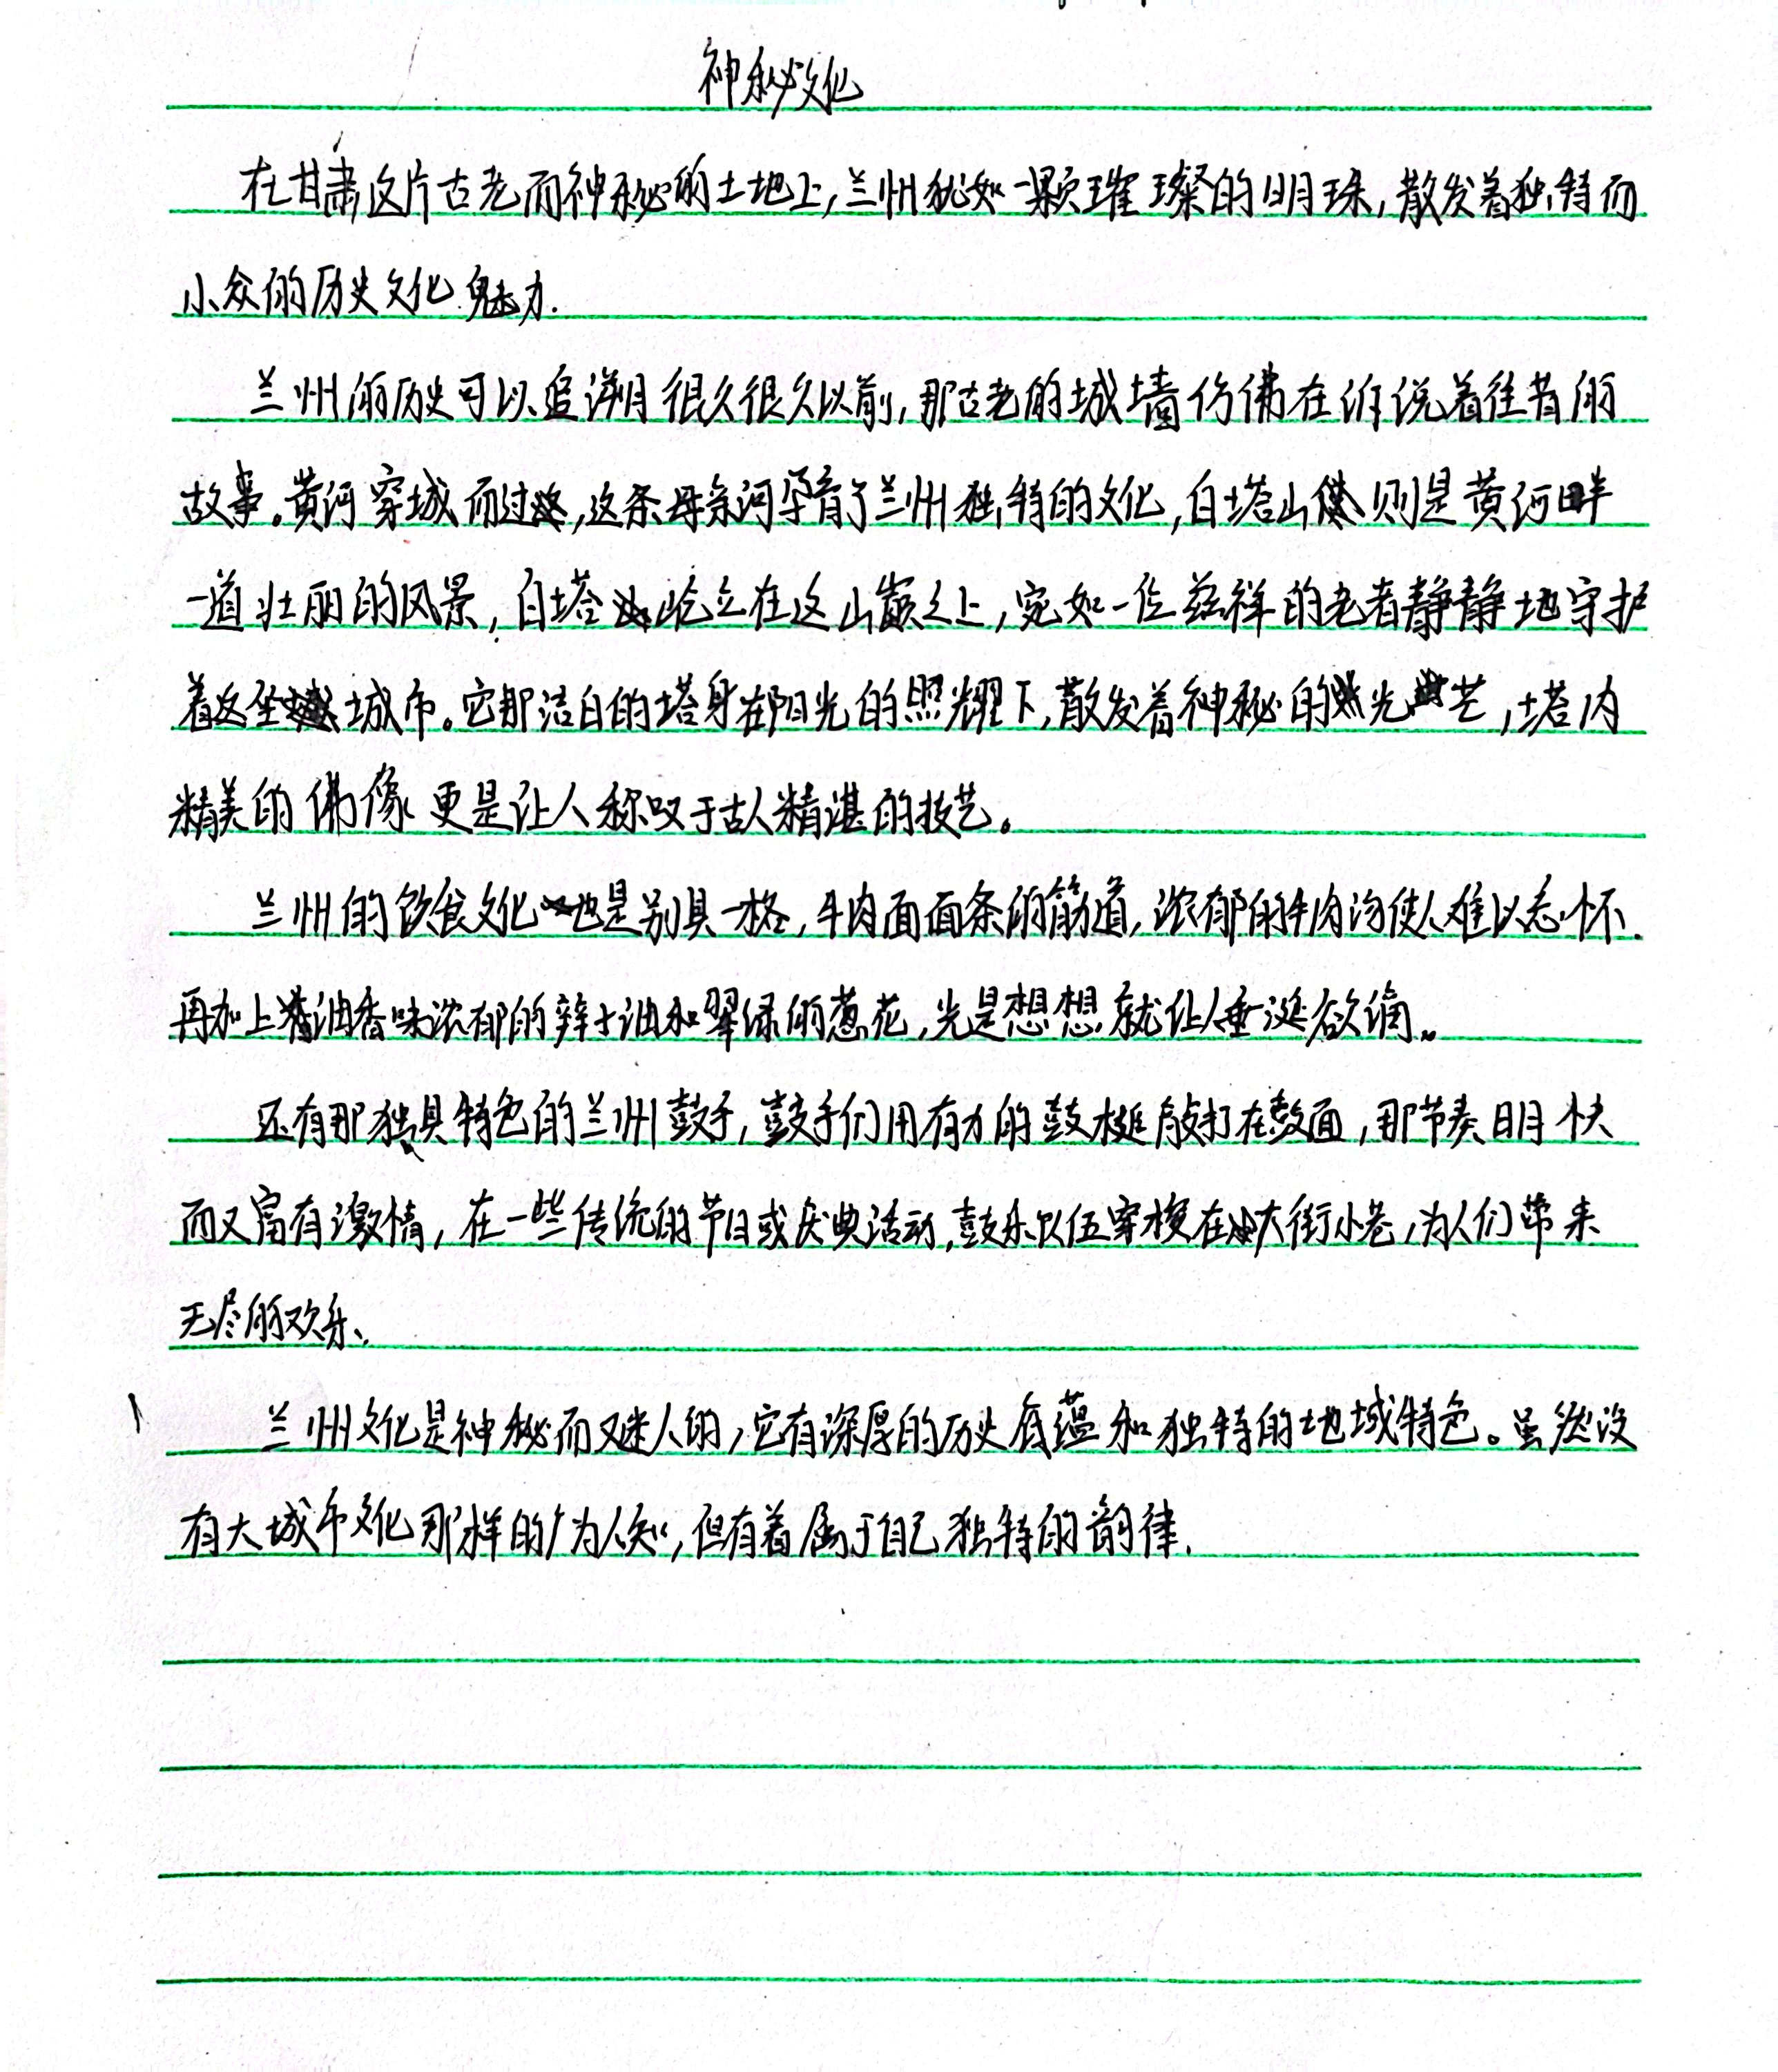 神秘文化
在甘肃这片古老而神秘的土地上,兰州犹如一颗璀璨的明珠,散发着独特而
小众的历史文化魅力.
兰州的历史可以追溯月很久很久以前,那古老的城墙仿佛在诉说着往昔的
故事。黄河穿城而过,这条母亲河孕育了兰州独特的文化,白塔山则是黄河畔
一道壮丽的风景,白塔屹立在这山巅之上,宛如一位慈祥的老者静静地守护
着这座城市。它那洁白的塔身在阳光的照耀下,散发着神秘的光芒,塔内
精美的佛像更是让人称叹于古人精湛的技艺。
兰州的饮食文化也是别具一格,牛肉面面条的筋道,浓郁的牛肉汤使人难以忘怀.
再加上油香味浓郁的辣子油和翠绿的葱花,光是想想就让人垂涎欲滴。
还有那独具特色的兰州鼓子,鼓手们用有力的鼓槌敲打在鼓面,那节奏明快
而又富有激情,在一些传统的节日或庆典活动,鼓乐队伍穿梭在大街小巷,为人们带来
无尽的欢乐、
兰州文化是神秘而又迷人的,它有深厚的历史底蕴和独特的地域特色。虽然没
有大城市文化那样的广为人知,但有着属于自己独特的韵律.